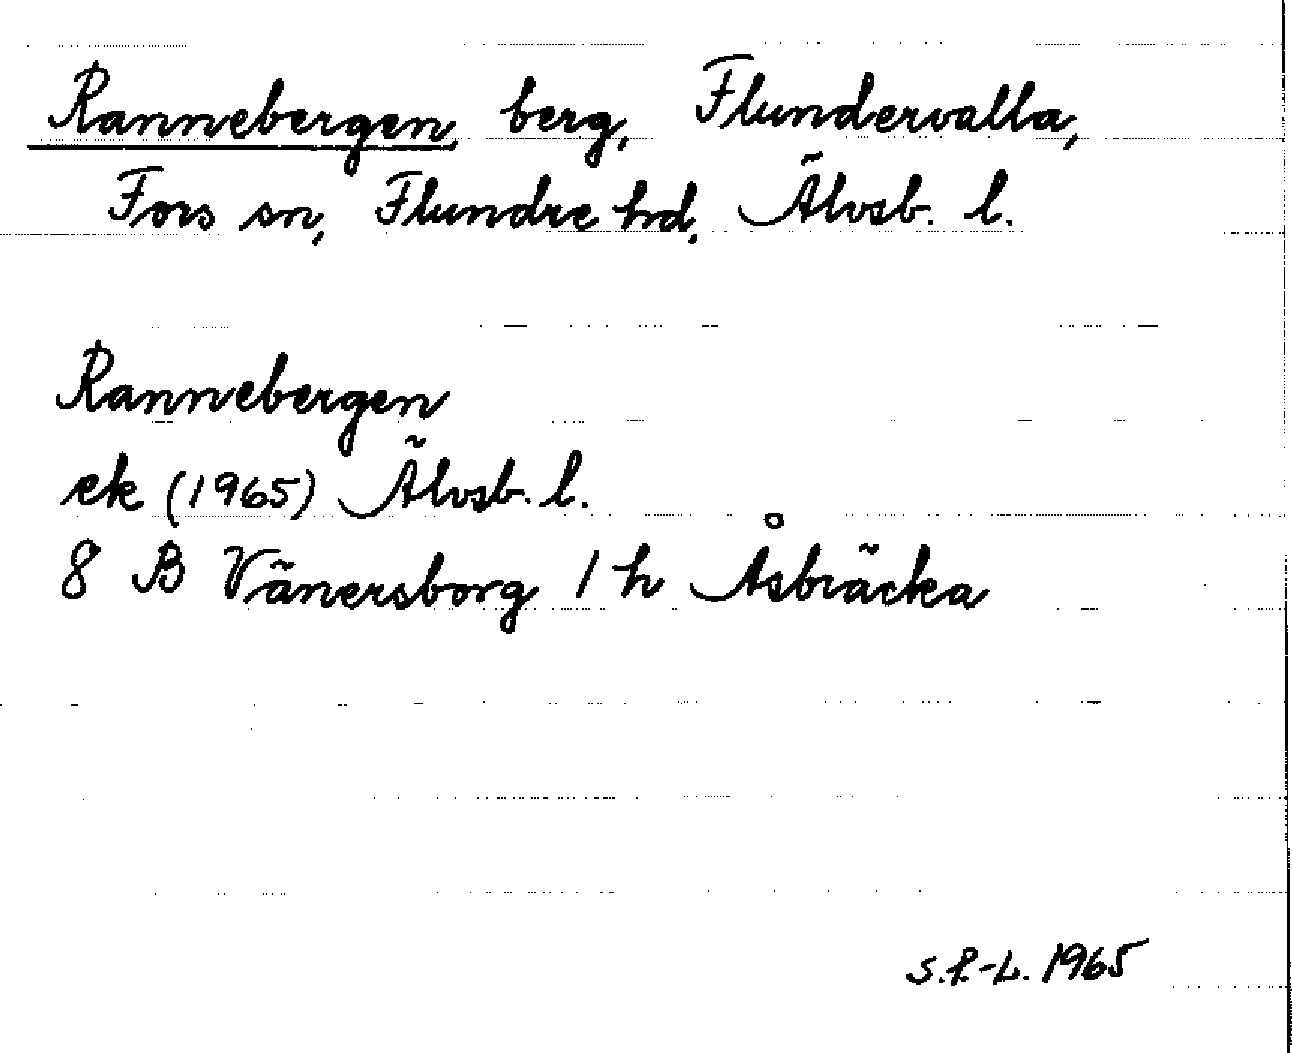 Rannebergen, berg, Flundervalla,
Fors sn, Flundre hd, Älvsb. l.
Rannebergen
ek (1965) Älvsb. l.
8 B Vänersborg 1 h Åsbräcka
S.P-L. 1965